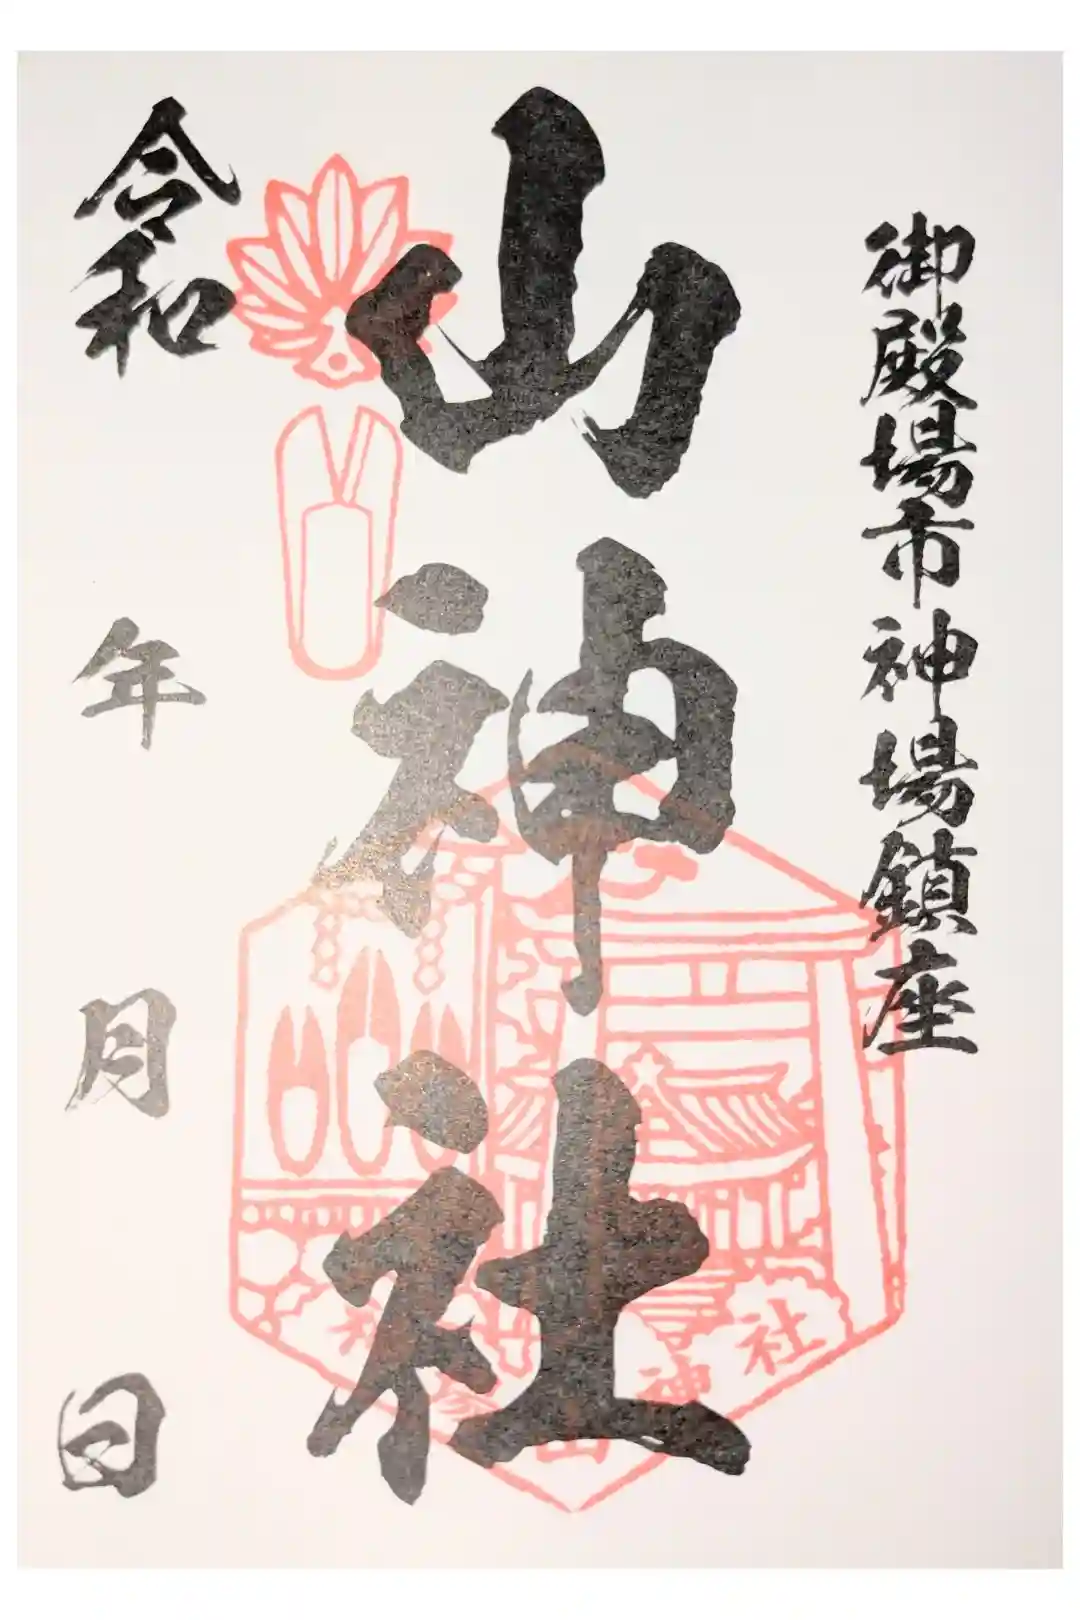 御殿場市神場鎮座
山神社
令和 年 月 日
神場山神社